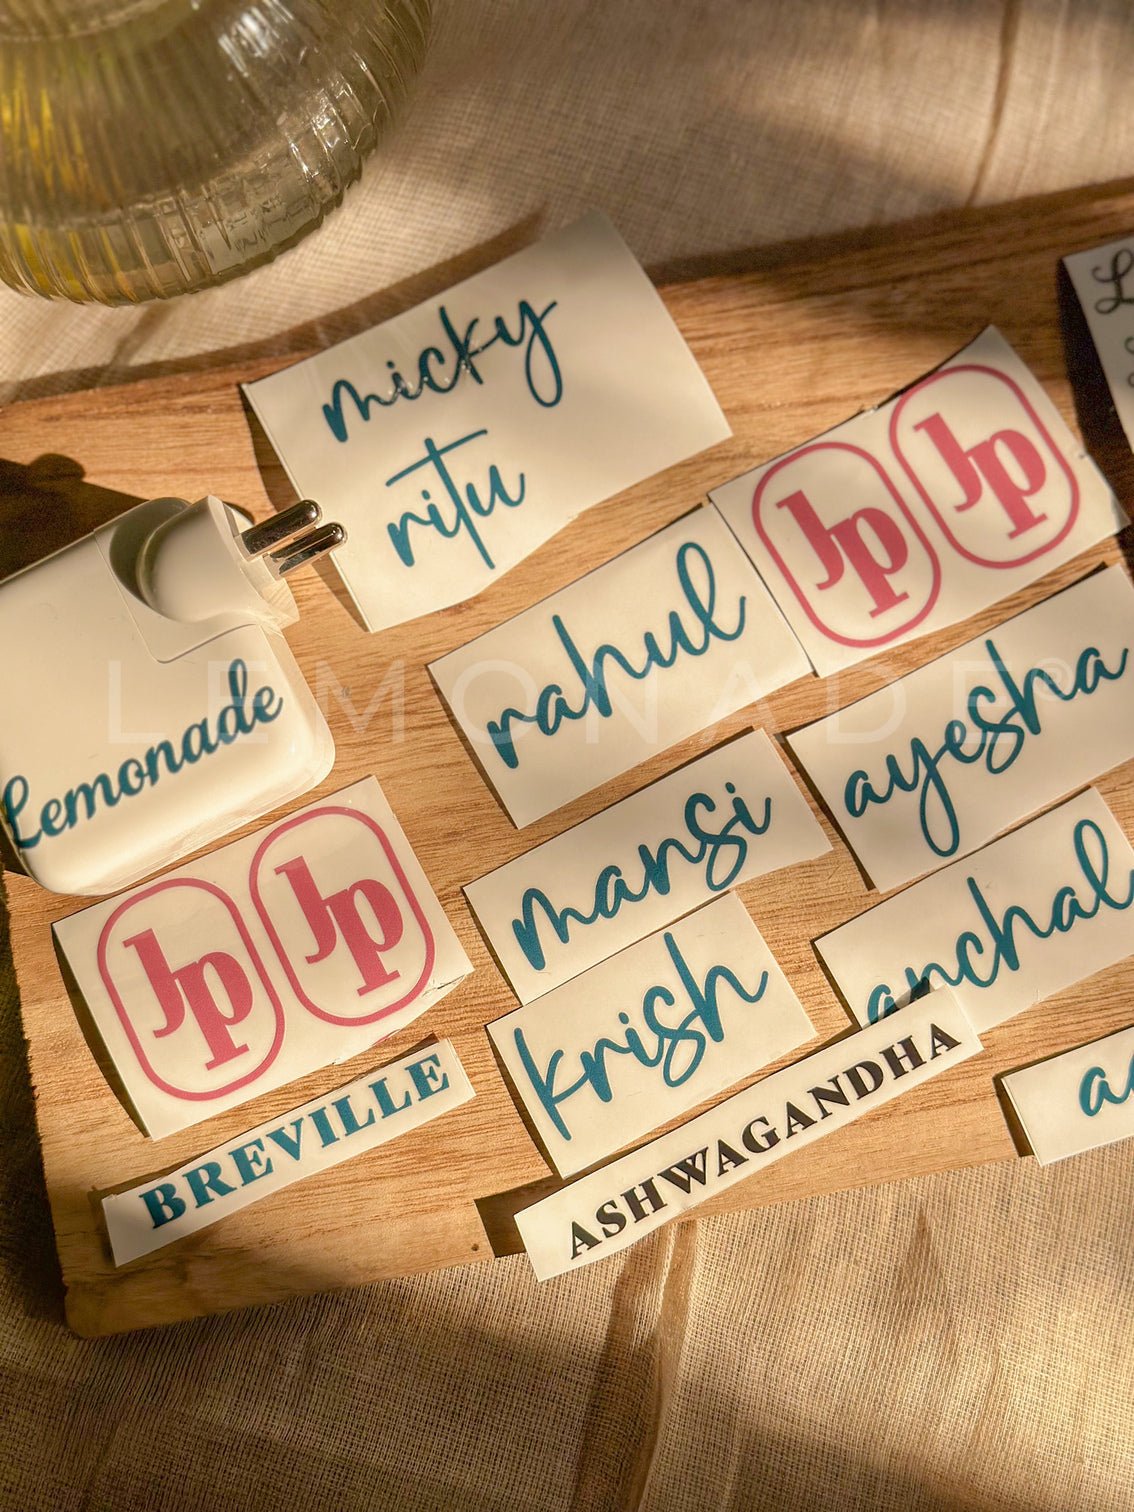 micky
ritu
JP
JP
rahul
ayesha
LEMONADE®
Lemonade
mansi
anchal
JP
JP
krish
BREVILLE
ASHWAGANDHA